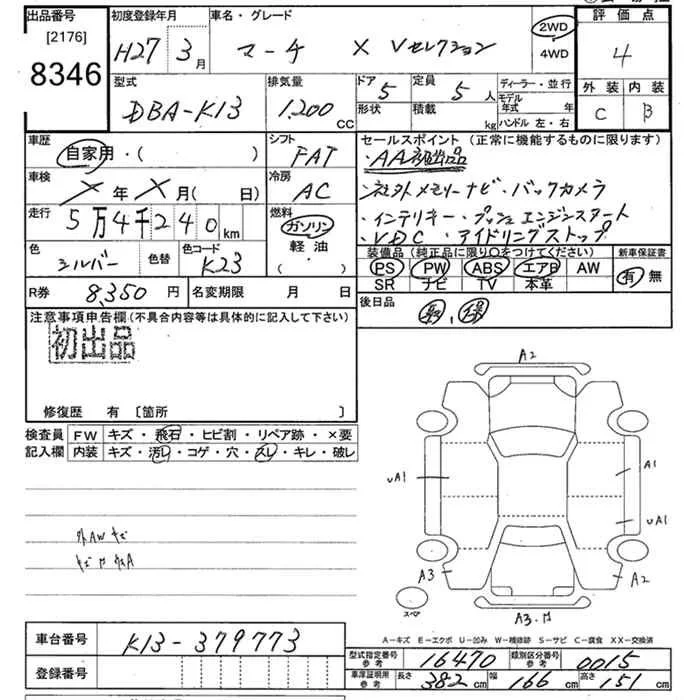 出品番号 初度登録年月 車名・グレード 2WD 評価点
[2176] H27年3月 マーチ X Vセレクション 4WD 4
8346 型式 排気量 ドア 定員 ディーラー・並行 外装 内装
DBA-K13 1,200CC 5 5人 モデル年式 年 C B
形状 積載 kg ハンドル 左・右
車歴 シフト セールスポイント(正常に機能するものに限ります)
自家用・( ) FAT ・AA初出品
車検 冷房 ・社外メモリーナビ・バックカメラ
X年X月( 日) AC ・インテリキー・プッシュエンジンスタート
走行 燃料 ・VDC・アイドリングストップ
5万4千240km ガソリン
色 色替 色コード 軽油 装備品(純正品に限り○をつけてください) 新車保証書
シルバー K23 ( ・ ) PS PW ABS エアB AW 有 無
SR ナビ TV 本革
R券 8,350円 名変期限 月 日 後日品
注意事項申告欄(不具合内容等は具体的に記入して下さい)
初出品
修復歴 有 〔箇所 〕
検査員 FW キズ・飛石・ヒビ割・リペア跡・×要
記入欄 内装 キズ・汚レ・コゲ・穴・スレ・キレ・破レ
A2
UA1 A1
UA1
外AWキズ
A3 A2
スペア
A3.
A-キズ E-エクボ U-凹み W-補修跡 S-サビ C-腐食 XX-交換済
車台番号 K13-379773 型式指定番号参考 16470 類別区分番号参考 0015
登録番号 車庫証明用参考 長さ 382cm 幅 166cm 高さ 151cm